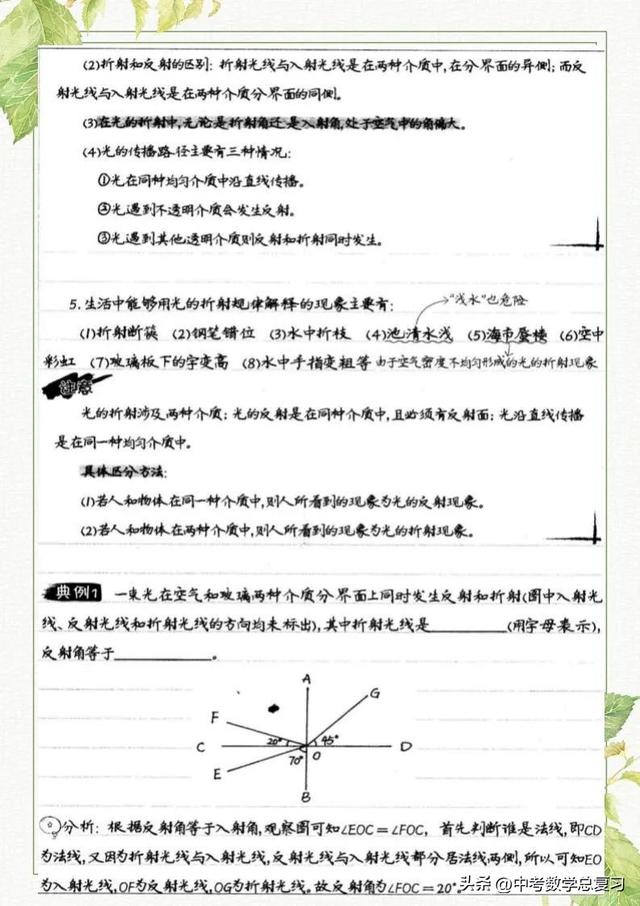 (2)折射和反射的区别：折射光线与入射光线是在两种介质中，在分界面的异侧；而反
射光线与入射光线是在两种介质分界面的同侧。
(3)在光的折射中，无论是折射角还是入射角，处于空气中的角偏大。
(4)光的传播路径主要有三种情况：
①光在同种均匀介质中沿直线传播。
②光遇到不透明介质会发生反射。
③光遇到其他透明介质则反射和折射同时发生。
“浅水”也危险
5.生活中能够用光的折射规律解释的现象主要有：
(1)折射断筷 (2)钢笔错位 (3)水中折枝 (4)池清水浅 (5)海市蜃楼 (6)空中
彩虹 (7)玻璃板下的字变高 (8)水中手指变粗等 由于空气密度不均匀形成的光的折射现象
注意
光的折射涉及两种介质；光的反射是在同种介质中，且必须有反射面；光沿直线传播
是在同一种均匀介质中。
具体区分方法：
(1)若人和物体在同一种介质中，则人所看到的现象为光的反射现象。
(2)若人和物体在两种介质中，则人所看到的现象为光的折射现象。
典例1 一束光在空气和玻璃两种介质分界面上同时发生反射和折射(图中入射光
线、反射光线和折射光线的方向均未标出)，其中折射光线是________(用字母表示)，
反射角等于________。
A
G
F
C 20° 45° D
70° O
E
B
分析：根据反射角等于入射角，观察图可知∠EOC=∠FOC，首先判断谁是法线，即CD
为法线，又因为折射光线与入射光线，反射光线与入射光线都分居法线两侧，所以可知EO
为入射光线，OF为反射光线，OG为折射光线。故反射角为∠FOC=20°。
头条 @中考数学总复习